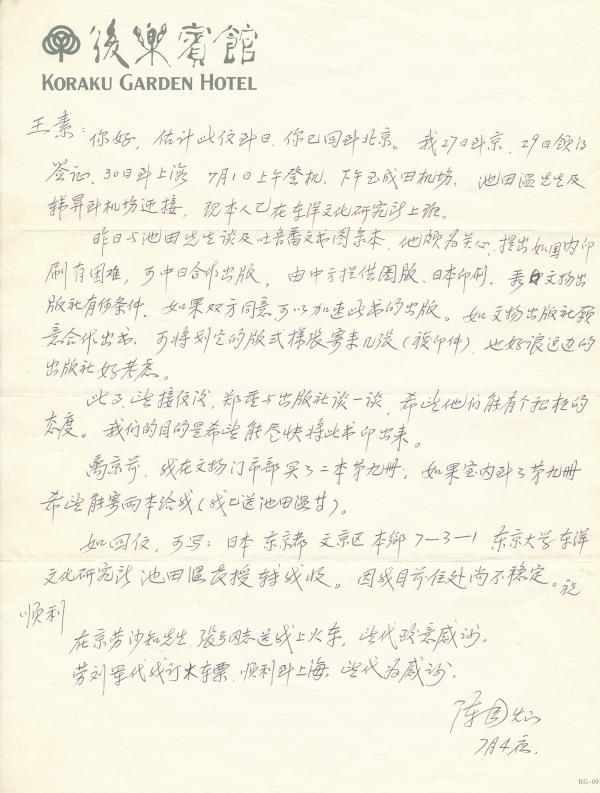 後樂賓館
KORAKU GARDEN HOTEL
王素:
你好,估计此信到日,你已回到北京。我27日到京,29日领到
签证,30日到上海,7月1日上午登机,下午至成田机场,池田温先生及
韩昇到机场迎接,现本人已在东洋文化研究所上班。
昨日与池田先生谈及吐鲁番文书图录本,他颇为关心,提出如国内印
刷有困难,可中日合作出版,由中方提供图版,日本印刷,看文物出
版社有何条件,如果双方同意,可以加速此书的出版。如文物出版社愿
意合作出书,可将划定的版式样张寄来几张(复印件),也好让这边的
出版社好考虑。
此事,望接信后,郑重与出版社谈一谈,希望他们能有个积极的
态度。我们的目的是希望能尽快将此书印出来。
离京前,我在文物门市部买了二本第九册,如果室内到了第九册
希望能寄两本给我(我已送池田温先生)。
如回信,可写:日本 东京都 文京区 本乡7-3-1 东京大学东洋
文化研究所 池田温教授转我收。因我目前住处尚不稳定。祝
顺利
在京劳沙知先生、同志送我上火车,望代致意感谢。
劳刘军代我订火车票,顺利到上海,望代为感谢。
陈国灿
7月4夜.
KG-09